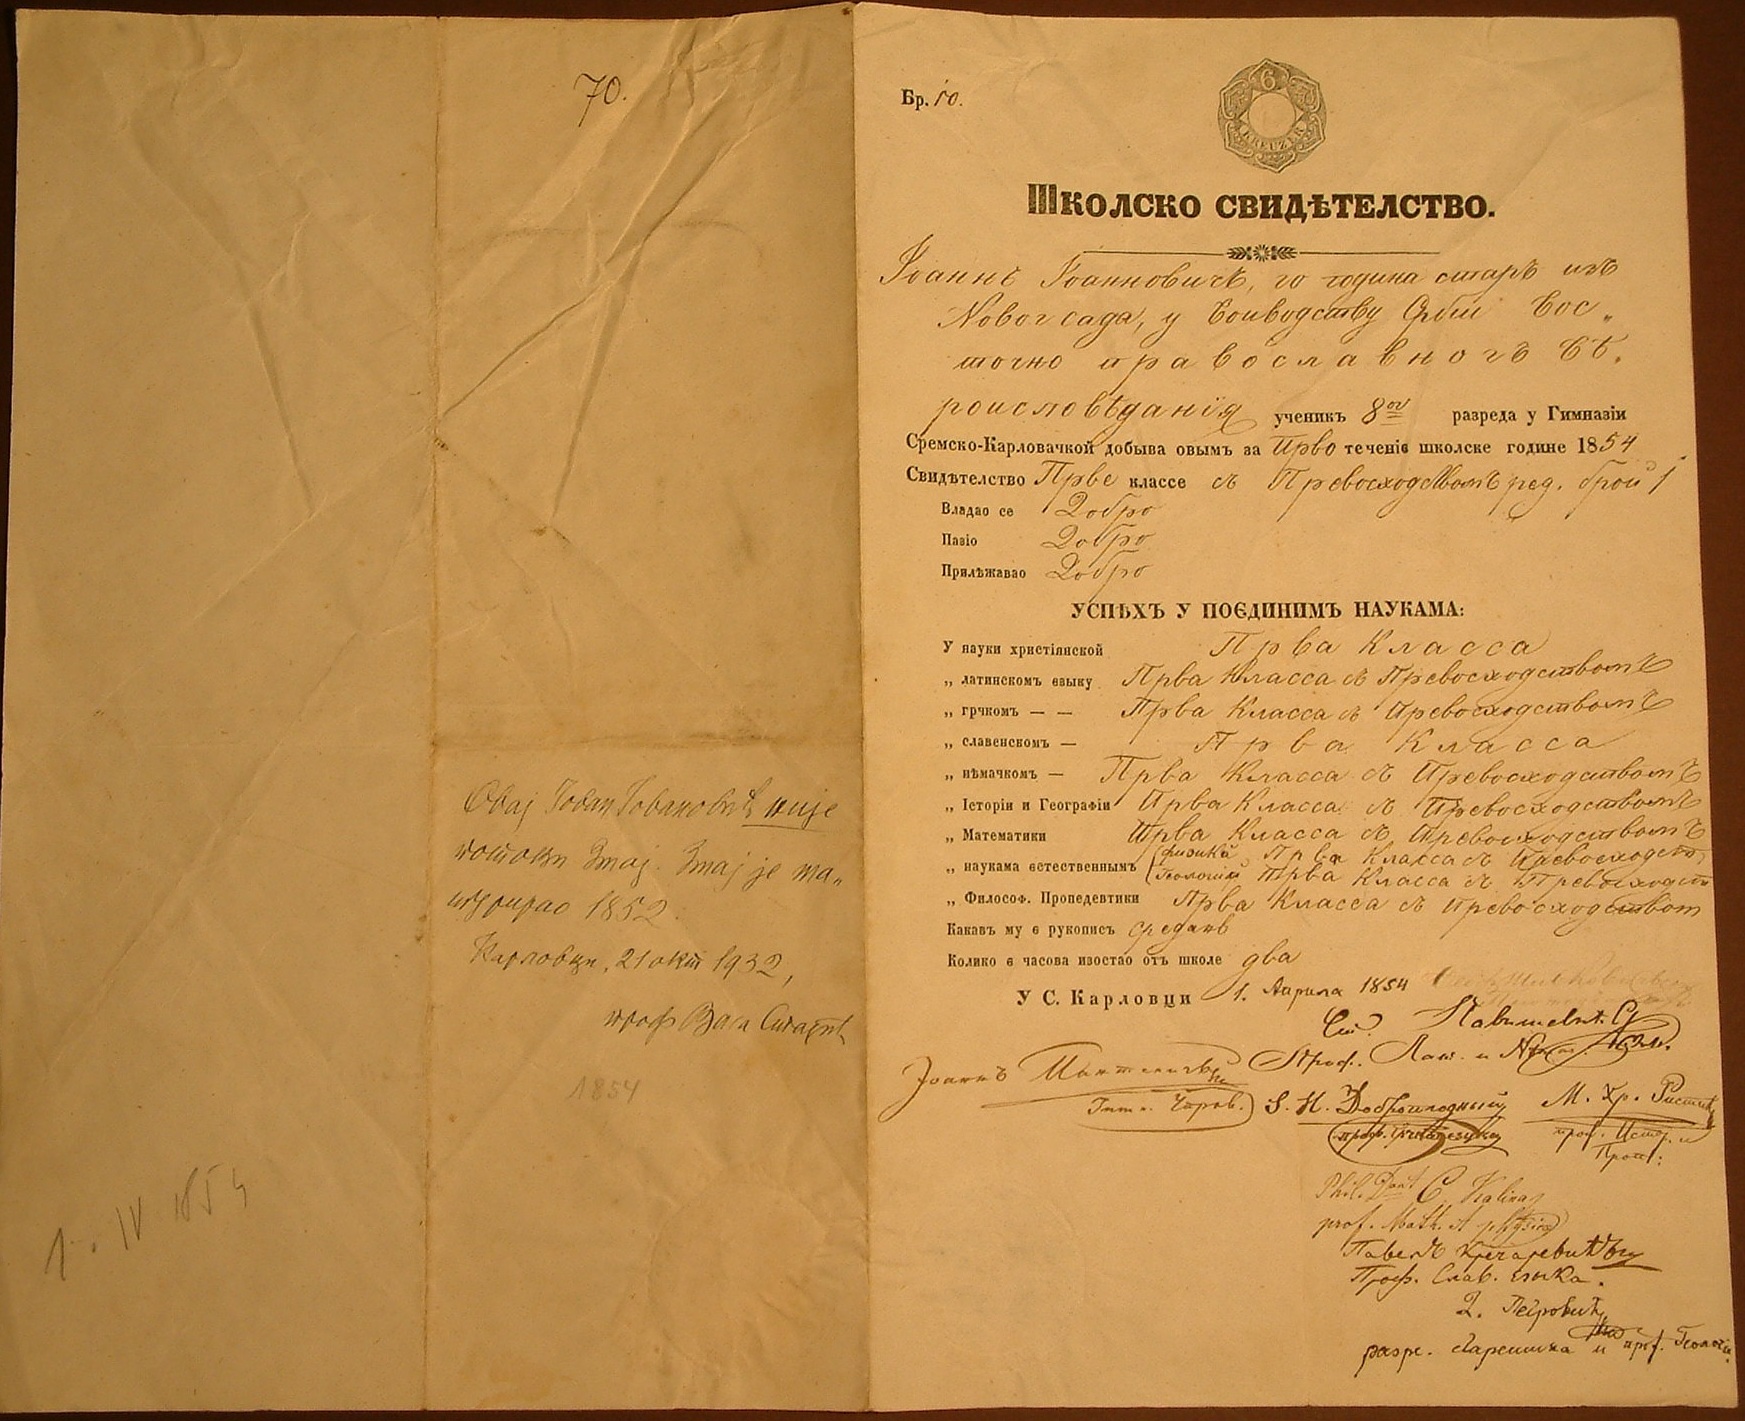 70.
Овај Јован Јовановић није
песник Змај. Змај је ма„
турирао 1852.
Карловци, 21 окт 1932,
проф Васа
1854
1. IV 1854
Бр. 10.
6
KREUZER
Школско свидѣтелство.
Іоаннъ Іоанновичъ, 20 година старъ изъ
Новогсада, у Воиводству Србіи Вос„
точно православногъ вѣ„
роисповѣданія ученикъ 8ог разреда у Гимназіи
Сремско-Карловачкой добыва овымъ за Прво теченіе школске године 1854
Свидѣтелство Прве классе съ Превосходствомъ ред. брой 1
Владао се Добро
Пазіо Добро
Прилѣжавао Добро
УСПѢХЪ У ПОЄДИНИМЪ НАУКАМА:
У науки христіянской Прва Класса
„ латинскомъ єзыку Прва Класса съ Превосходствомъ
„ грчкомъ — — Прва Класса съ Превосходствомъ
„ славенскомъ — Прва Класса
„ нѣмачкомъ — Прва Класса съ Превосходствомъ
„ Історіи и Географіи Прва Класса съ Превосходствомъ
„ Математики Прва Класса съ Превосходствомъ
„ наукама єстественнымъ Физики Прва Класса съ Превосходств
Геологіи Прва Класса съ Превосходств
„ Философ. Пропедевтики Прва Класса съ Превосходством
Какавъ му є рукопись средань
Колико є часова изостао отъ школе два
У С. Карловци 1. Априла 1854
Проф. Лат. и
Іоаннъ
П. Н. Доброплодный
проф. грчког езика
М. Хр. Ристић
проф. Истор. и
Проп:
Phil. Doct C. Kalina
prof. Math. et physicæ
Павелъ
Проф. Слав. єзыка.
Д. Петровић
разр. старешина и проф. Геологіи.